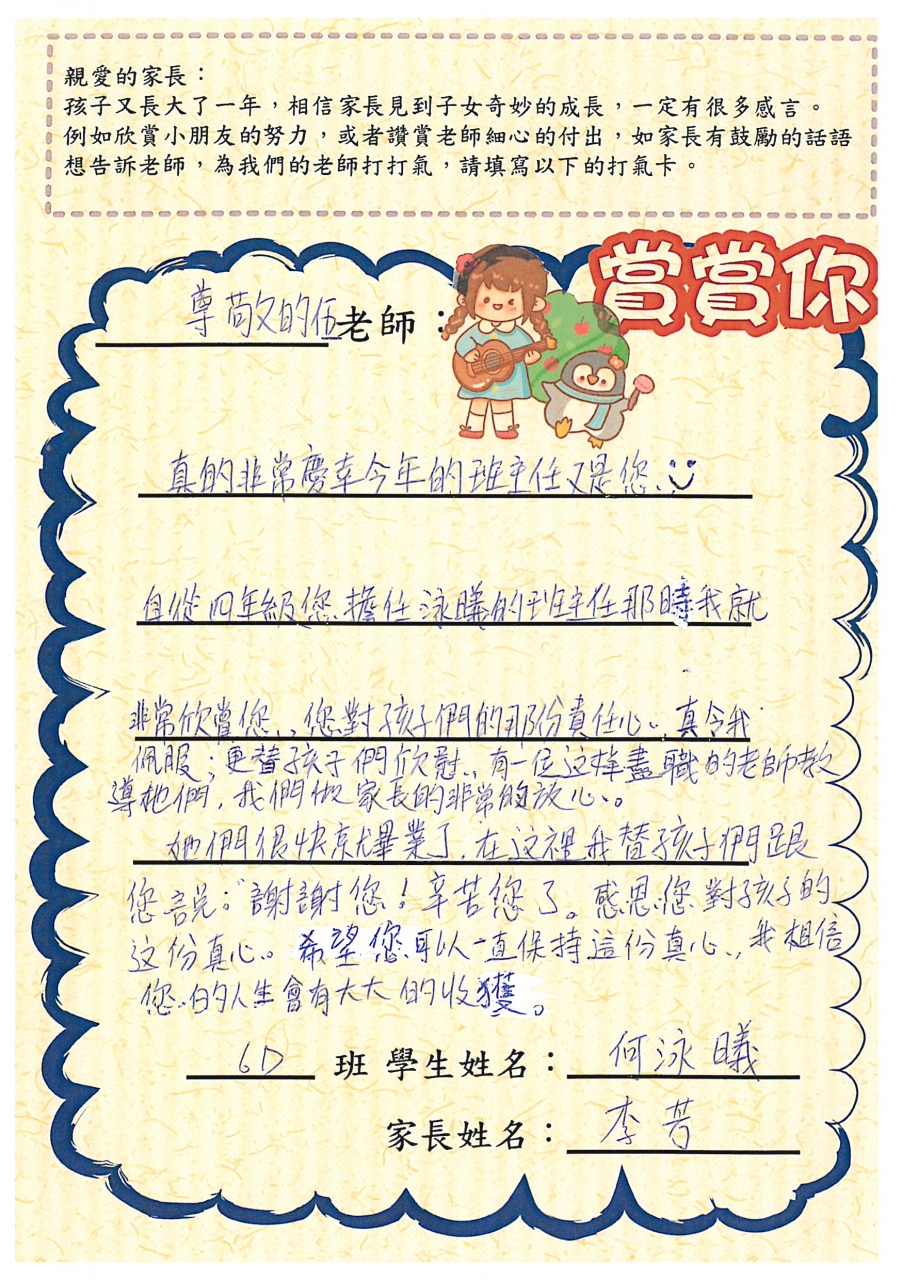 親愛的家長：
孩子又長大了一年，相信家長見到子女奇妙的成長，一定有很多感言。
例如欣賞小朋友的努力，或者讚賞老師細心的付出，如家長有鼓勵的話語
想告訴老師，為我們的老師打打氣，請填寫以下的打氣卡。
賞賞你
尊敬的伍老師：
真的非常慶幸今年的班主任又是您
自從四年級您擔任泳曦的班主任那時我就
非常欣賞您，您對孩子們的那份責任心。真令我
佩服；更替孩子們欣慰，有一位这样盡職的老師教
導她們，我們做家長的非常的放心。
她們很快就畢業了，在这裡我替孩子們跟
您説："謝謝您！辛苦您了。感恩您對孩子的
这份真心。希望您可以一直保持這份真心，我相信
您的人生會有大大的收獲。
6D 班 學生姓名：何泳曦
家長姓名：李芳